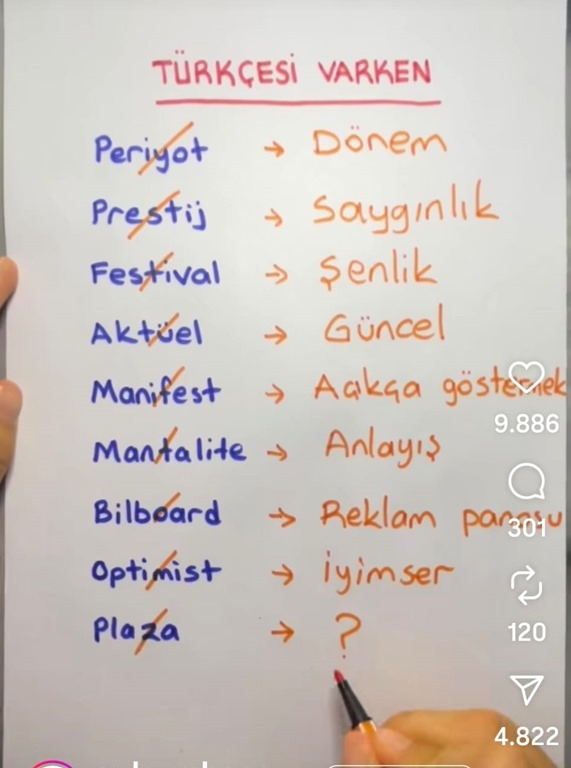 TÜRKÇESİ VARKEN
Periyot → Dönem
Prestij → Saygınlık
Festival → Şenlik
Aktüel → Güncel
Manifest → Açıkça göstermek
9.886
Mantalite → Anlayış
Bilboard → Reklam panosu
301
Optimist → İyimser
120
Plaza → ?
4.822